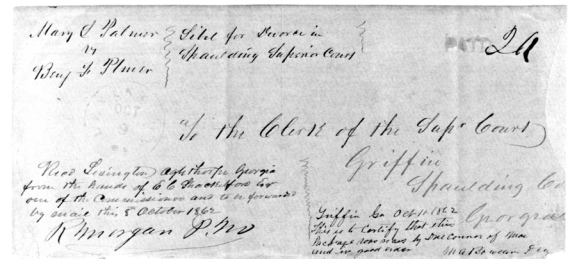 Mary S Palmer
vs
Benj F Plmer
Libel for Divorce in
Spaulding Superior Court
2A
To the Clerk of the Supr Court
Griffin
Spaulding Co
Georgia
Recd Lexington Oglethorpe Georgia
from the hands of
one of the Commissioners and to be forwarded
by mail this 8 October 1862
R Morgan P.M
Griffin Ga Oct 11 1862
This is to certify that this
Package was by Due Course of Mail
and in good order